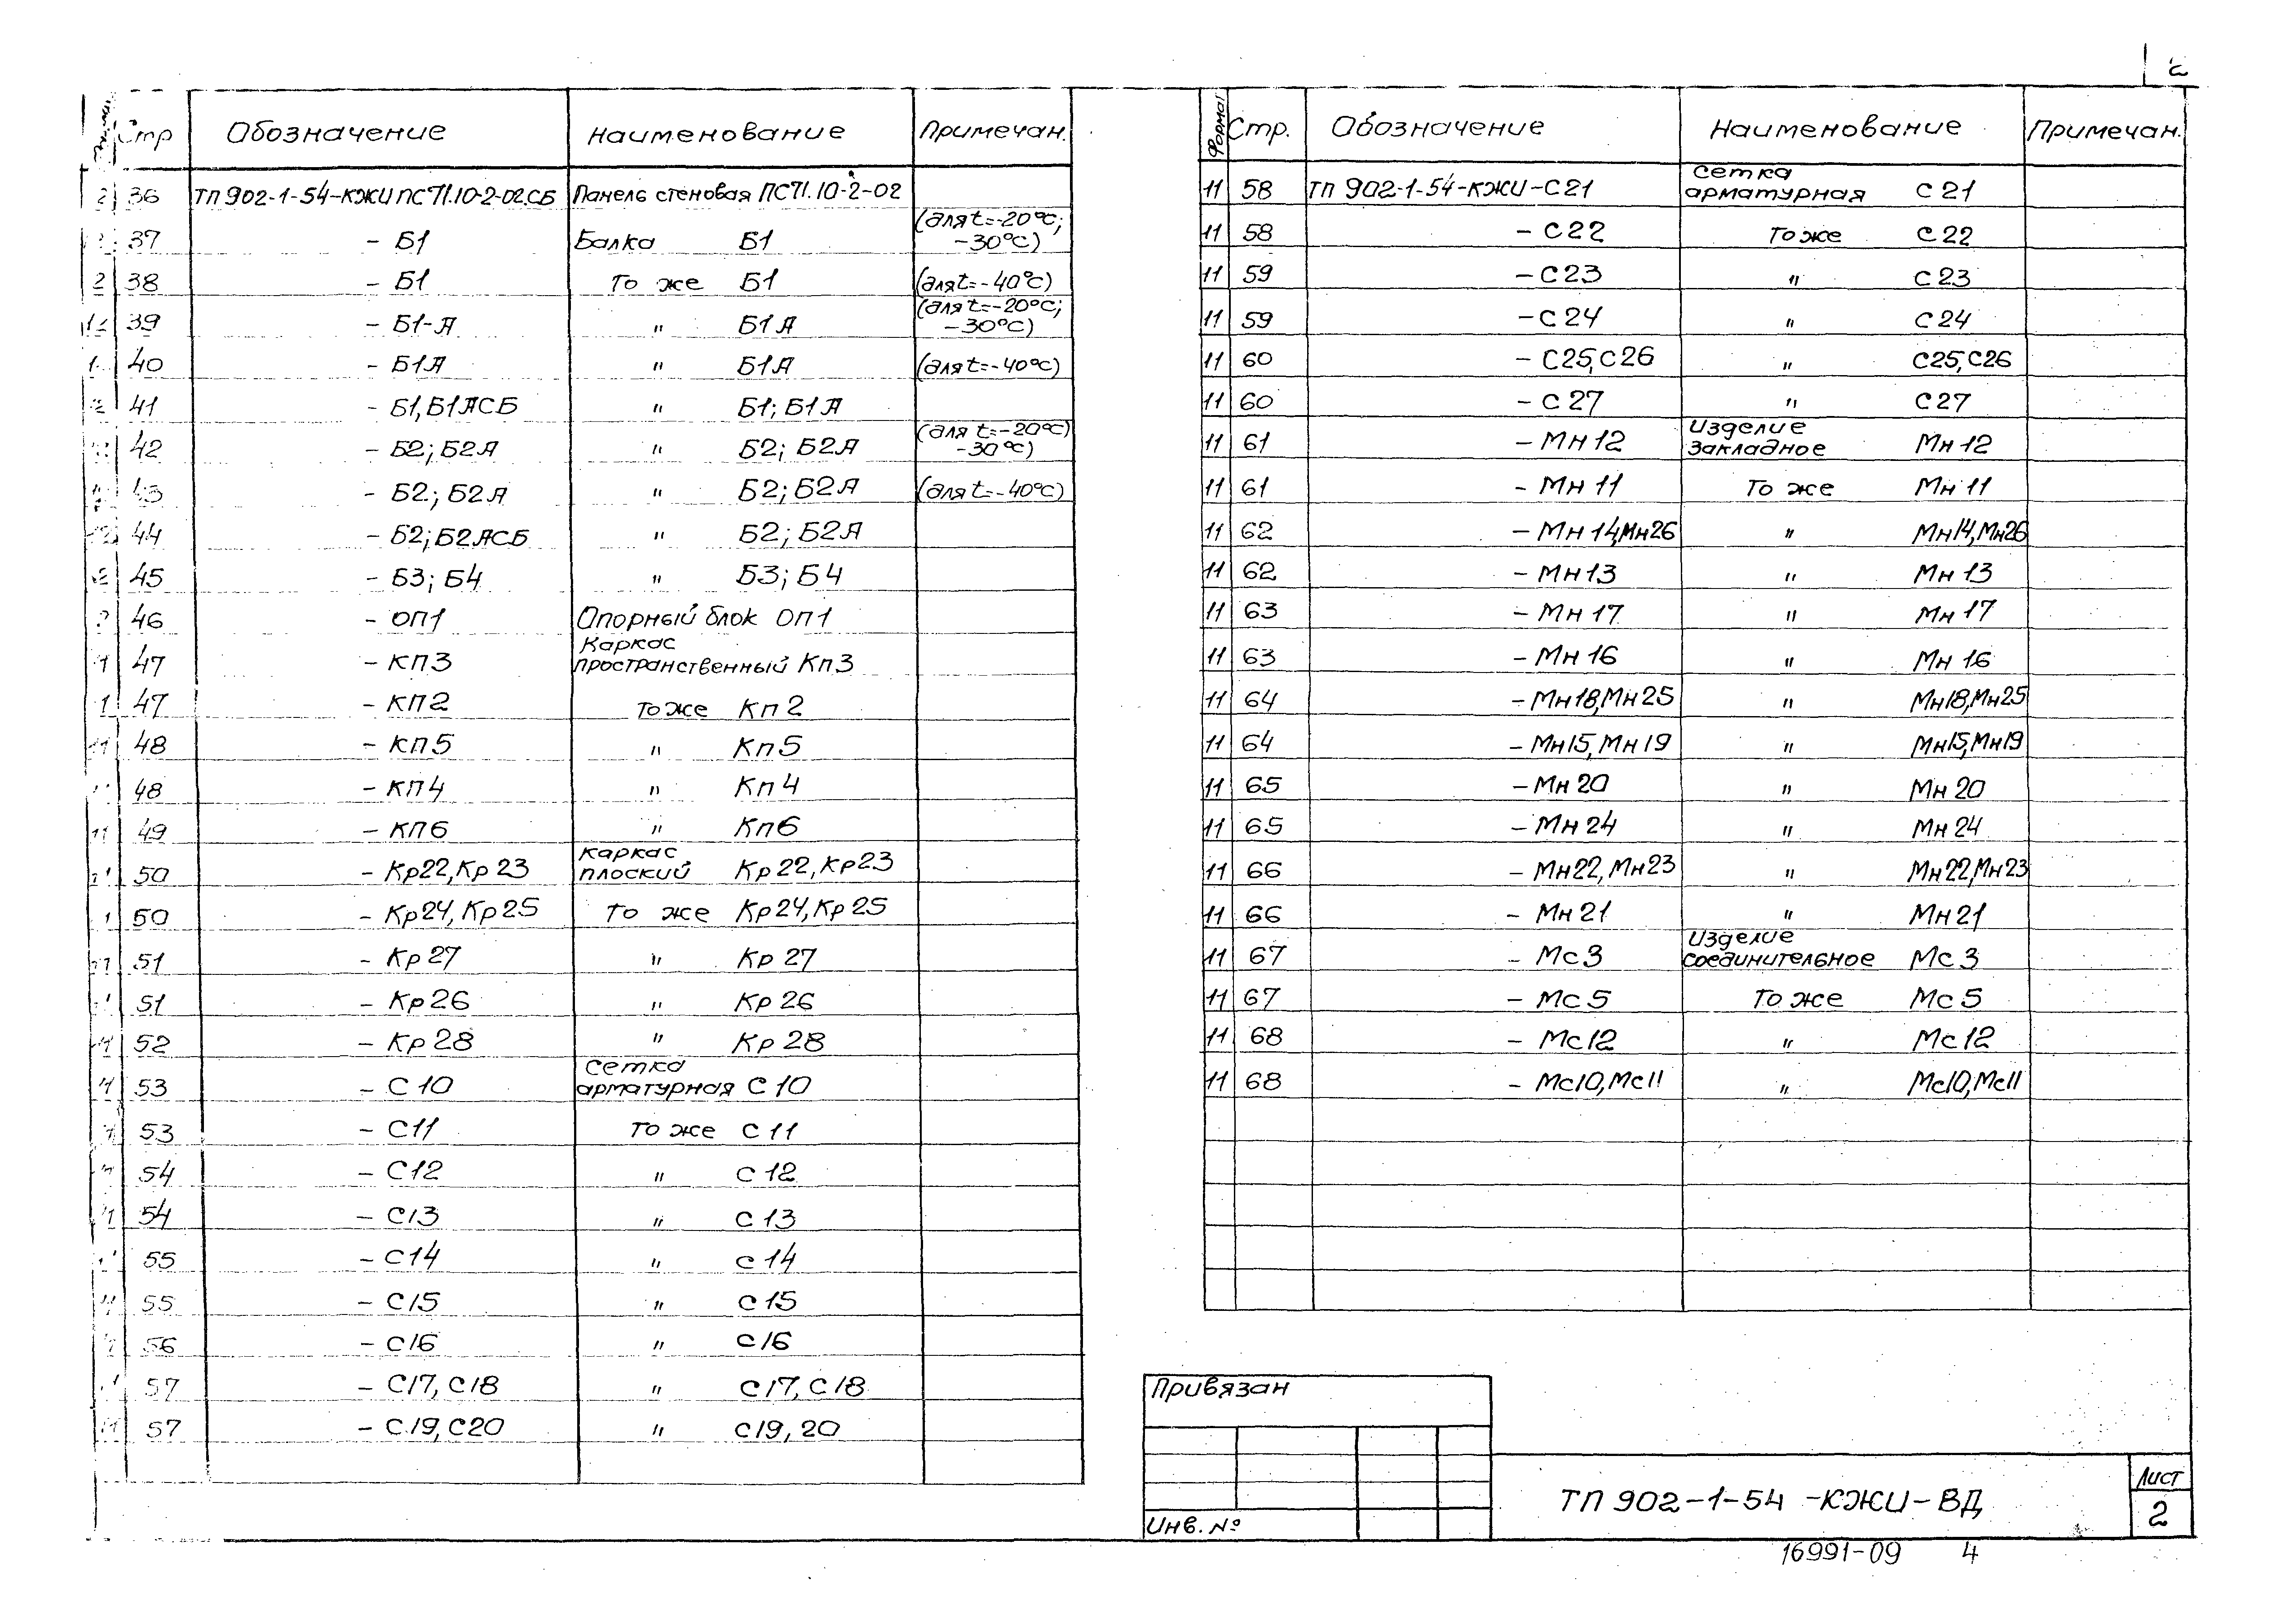 Стр Обозначение Наименование Примечан.
36 ТП 902-1-54-КЖИ ПС71.10-2-02.СБ Панель стеновая ПС71.10-2-02
37 - Б1 Балка Б1 (для t=-20°С; -30°С)
38 - Б1 То же Б1 (для t=-40°С)
39 - Б1-А " Б1А (для t=-20°С; -30°С)
40 - Б1А " Б1А (для t=-40°С)
41 - Б1,Б1АСБ " Б1; Б1А
42 - Б2; Б2А " Б2; Б2А (для t=-20°С) -30°С)
43 - Б2; Б2А " Б2; Б2А (для t=-40°С)
44 - Б2; Б2АСБ " Б2; Б2А
45 - Б3; Б4 " Б3; Б4
46 - ОП1 Опорный блок ОП1
47 - КП3 Каркас пространственный Кп3
47 - КП2 То же Кп2
48 - КП5 " Кп5
48 - КП4 " Кп4
49 - КП6 " Кп6
50 - Кр22, Кр23 Каркас плоский Кр22, Кр23
50 - Кр24, Кр25 То же Кр24, Кр25
51 - Кр27 " Кр27
51 - Кр26 " Кр26
52 - Кр28 " Кр28
53 - С10 Сетка арматурная С10
53 - С11 То же С11
54 - С12 " С12
54 - С13 " С13
55 - С14 " С14
55 - С15 " С15
56 - С16 " С16
57 - С17, С18 " С17, С18
57 - С19, С20 " С19, 20
Формат Стр. Обозначение Наименование Примечан.
11 58 ТП 902-1-54-КЖИ-С21 Сетка арматурная С21
11 58 - С22 То же С22
11 59 - С23 " С23
11 59 - С24 " С24
11 60 - С25, С26 " С25, С26
11 60 - С27 " С27
11 61 - Мн12 Изделие закладное Мн12
11 61 - Мн11 То же Мн11
11 62 - Мн14, Мн26 " Мн14, Мн26
11 62 - Мн13 " Мн13
11 63 - Мн17 " Мн17
11 63 - Мн16 " Мн16
11 64 - Мн18, Мн25 " Мн18, Мн25
11 64 - Мн15, Мн19 " Мн15, Мн19
11 65 - Мн20 " Мн20
11 65 - Мн24 " Мн24
11 66 - Мн22, Мн23 " Мн22, Мн23
11 66 - Мн21 " Мн21
11 67 - Мс3 Изделие соединительное Мс3
11 67 - Мс5 То же Мс5
11 68 - Мс12 " Мс12
11 68 - Мс10, Мс11 " Мс10, Мс11
Привязан
Инв. №
ТП 902-1-54-КЖИ-ВД
Лист
2
16991-09 4